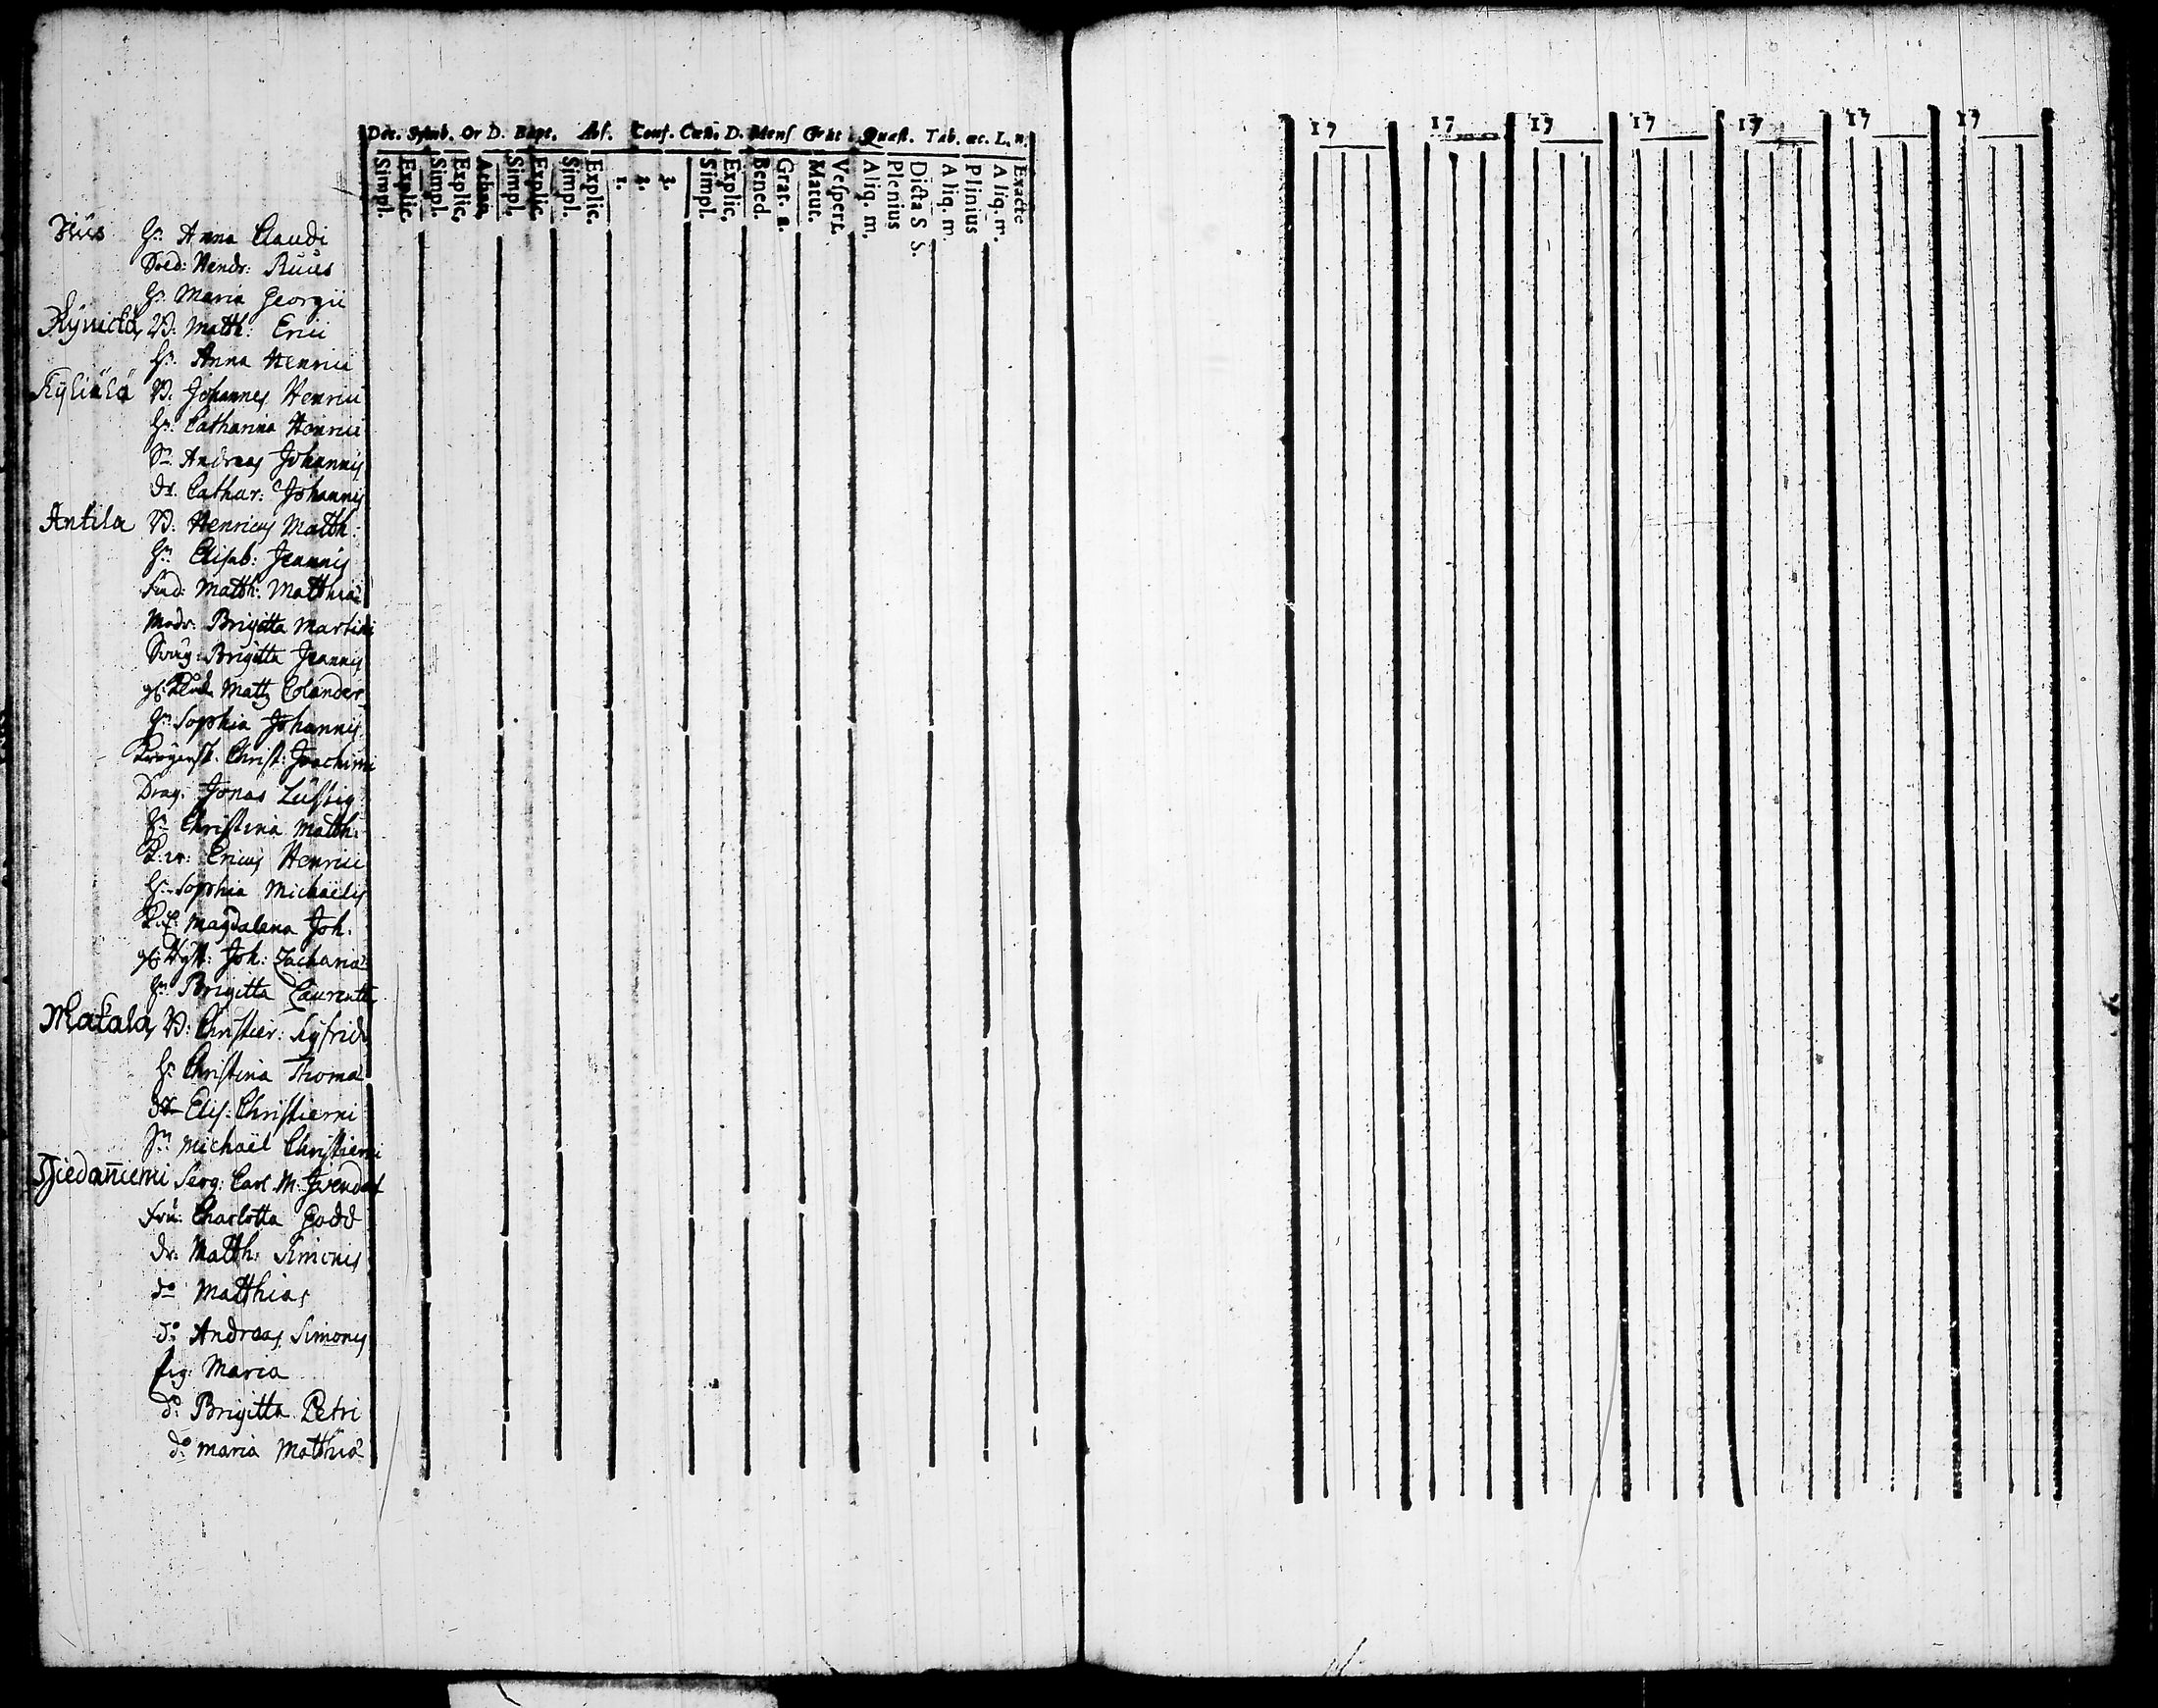 Dec. Symb. Or D. Bapt. Abs. Conf. Cœn. D. Mens Grat. Quæst. Tab. œc. L. n.
Simpl. Explic. Simpl. Explic. Athan. Simpl. Explic. Simpl. Explic. 1. 2. 3. Simpl. Explic. Bened. Grat. a. Matut. Vespert. Aliq. m. Plenius Dicta S S. Aliq. m. Plinius Aliq. m. Exacte
17 17 17 17 17 17 17
Hr. Anna Claudi
Sold: Hendr: Ruus
Hr. Maria Georgii
W. Matth: Erici
Hr. Anna Henrici
Kyliälä W. Johannes Henrici
Hr. Catharina Henrici
Sn Andreas Johannis
dr. Cathar: Johannis
Antila W. Henricus Matth:
Hr. Elisab: Joannis
Matth: Matthiæ
Modr. Brigitta Martini
Brigitta Joannis
Matts Colander
Hr. Sophia Johannis
Christ: Joachimi
Drag. Jonas Lustig
Hr. Christina Matth:
Ericus Henrici
Hr. Sophia Michaelis
Magdalena Joh.
Joh: Zachariæ
Hr. Brigitta Laurentii
Makala W: Christier: Sigfrid
Hr. Christina Thomæ
dr Elis: Christierni
Sn Michaël Christierni
Serg: Carl M.
Fru: Charlotta Gadd
dr. Matth: Simonis
do Matthias
do Andreas Simonis
pig: Maria
do Brigitta Petri
do Maria Matthiæ